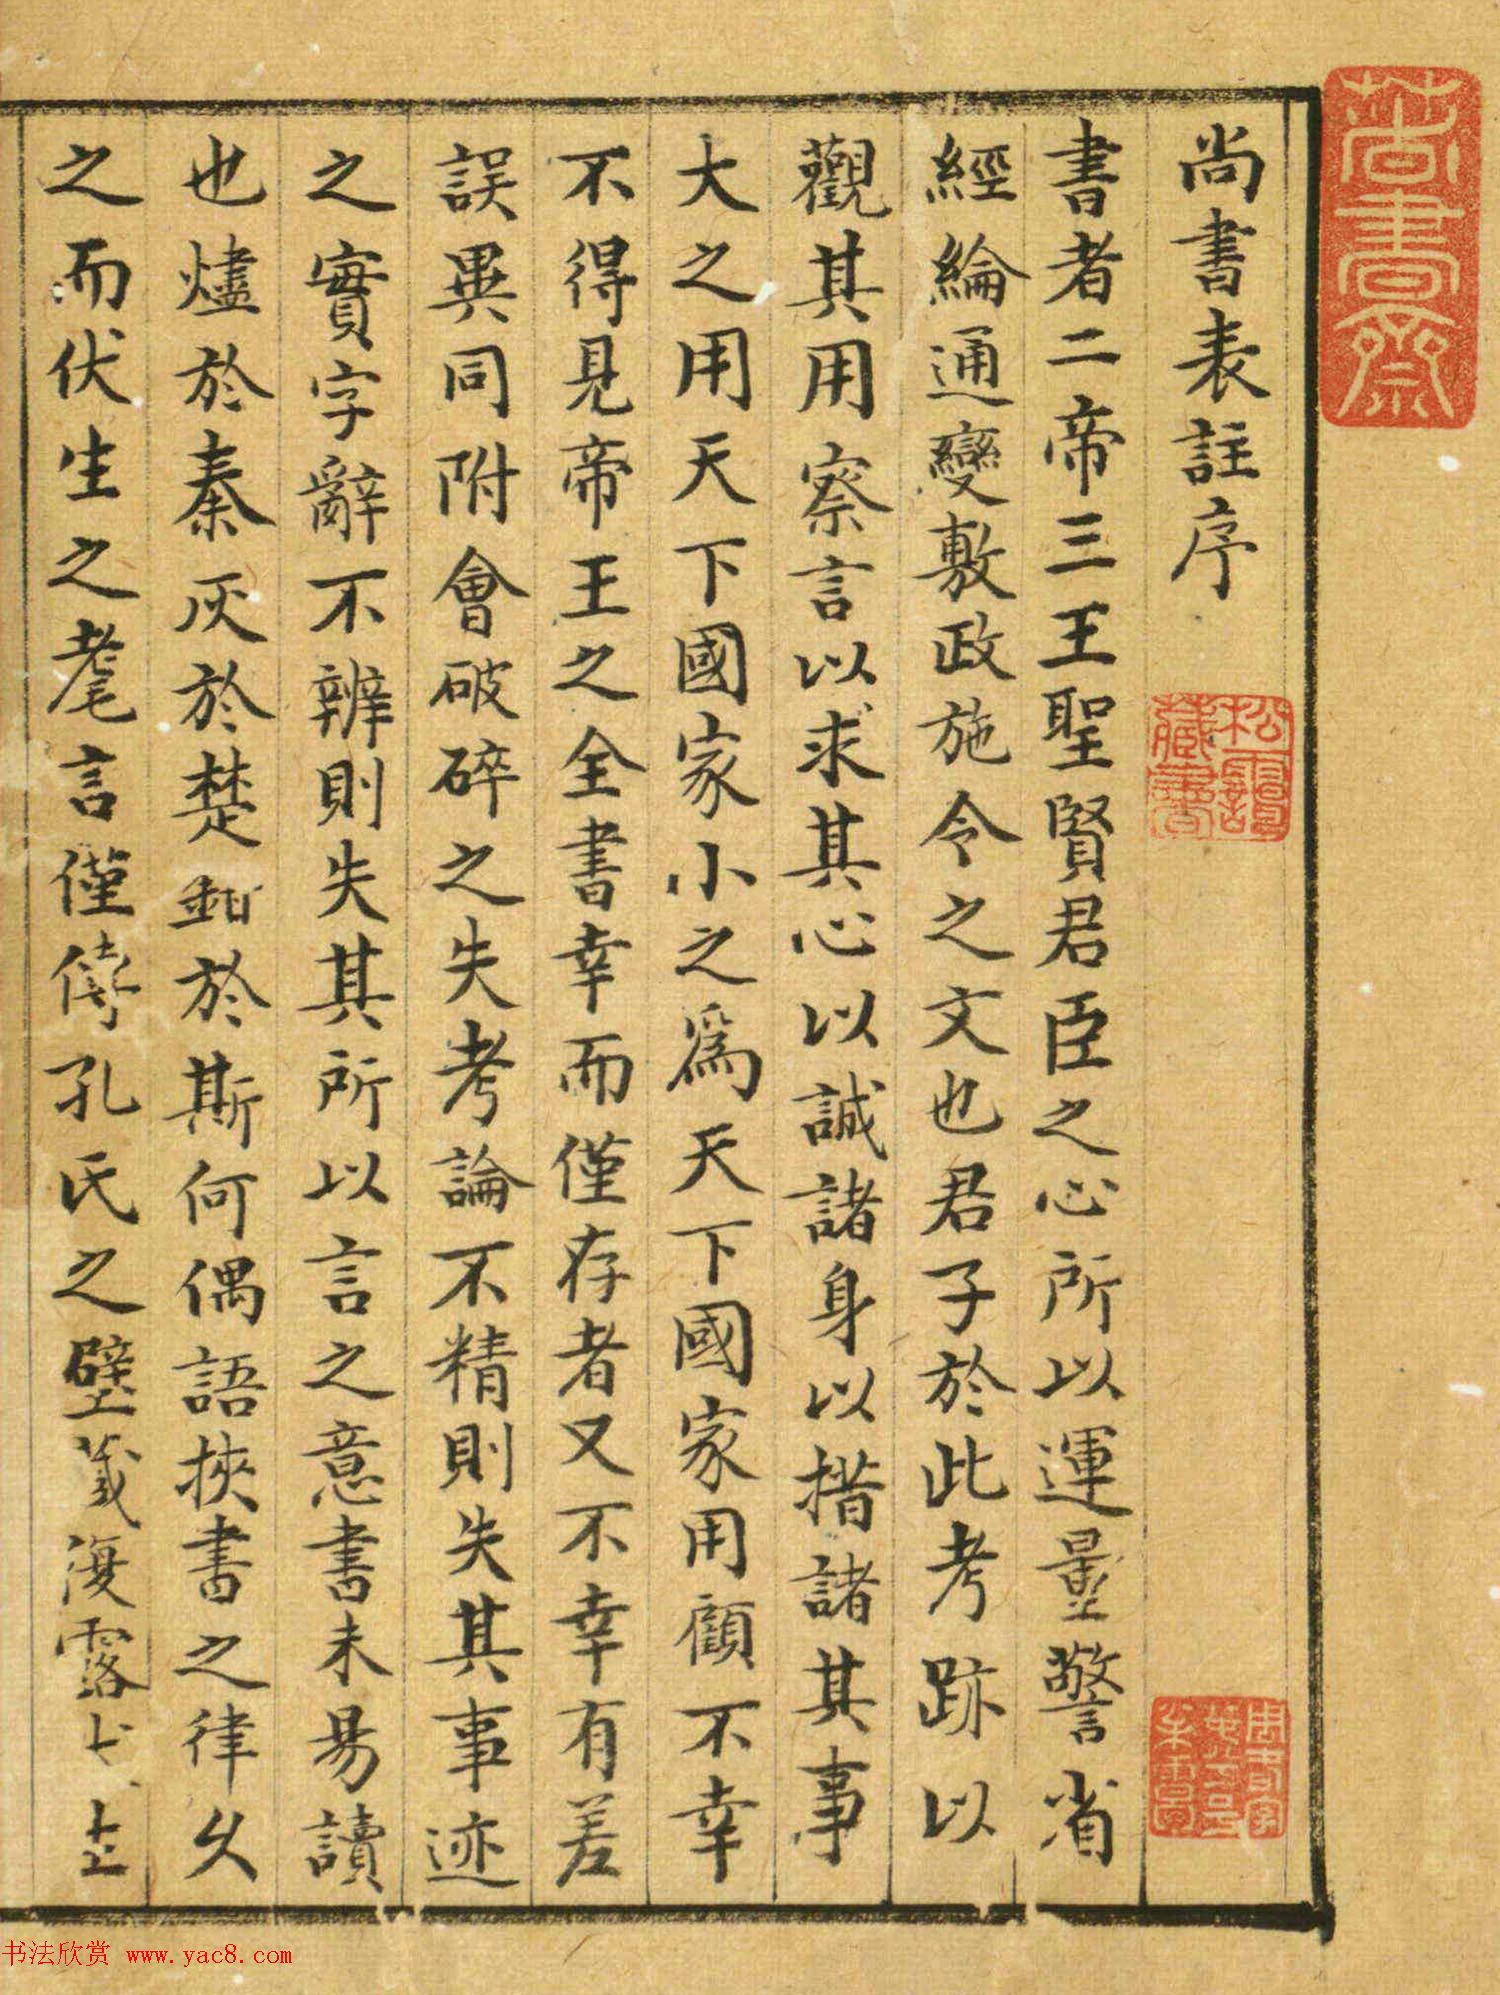 尚書表註序
書者二帝三王聖賢君臣之心所以運量警省
經綸通變敷政施令之文也君子於此考跡以
觀其用察言以求其心以誠諸身以措諸其事
大之用天下國家小之爲天下國家用顧不幸
不得見帝王之全書幸而僅存者又不幸有差
誤異同附會破碎之失考論不精則失其事迹
之實字辭不辨則失其所以言之意書未易讀
也燼於秦灰於楚鉗於斯何偶語挾書之律久
之而伏生之耄言僅傳孔氏之壁藏復露
尚書齋
松
藏書
书法欣赏 www.yac8.com